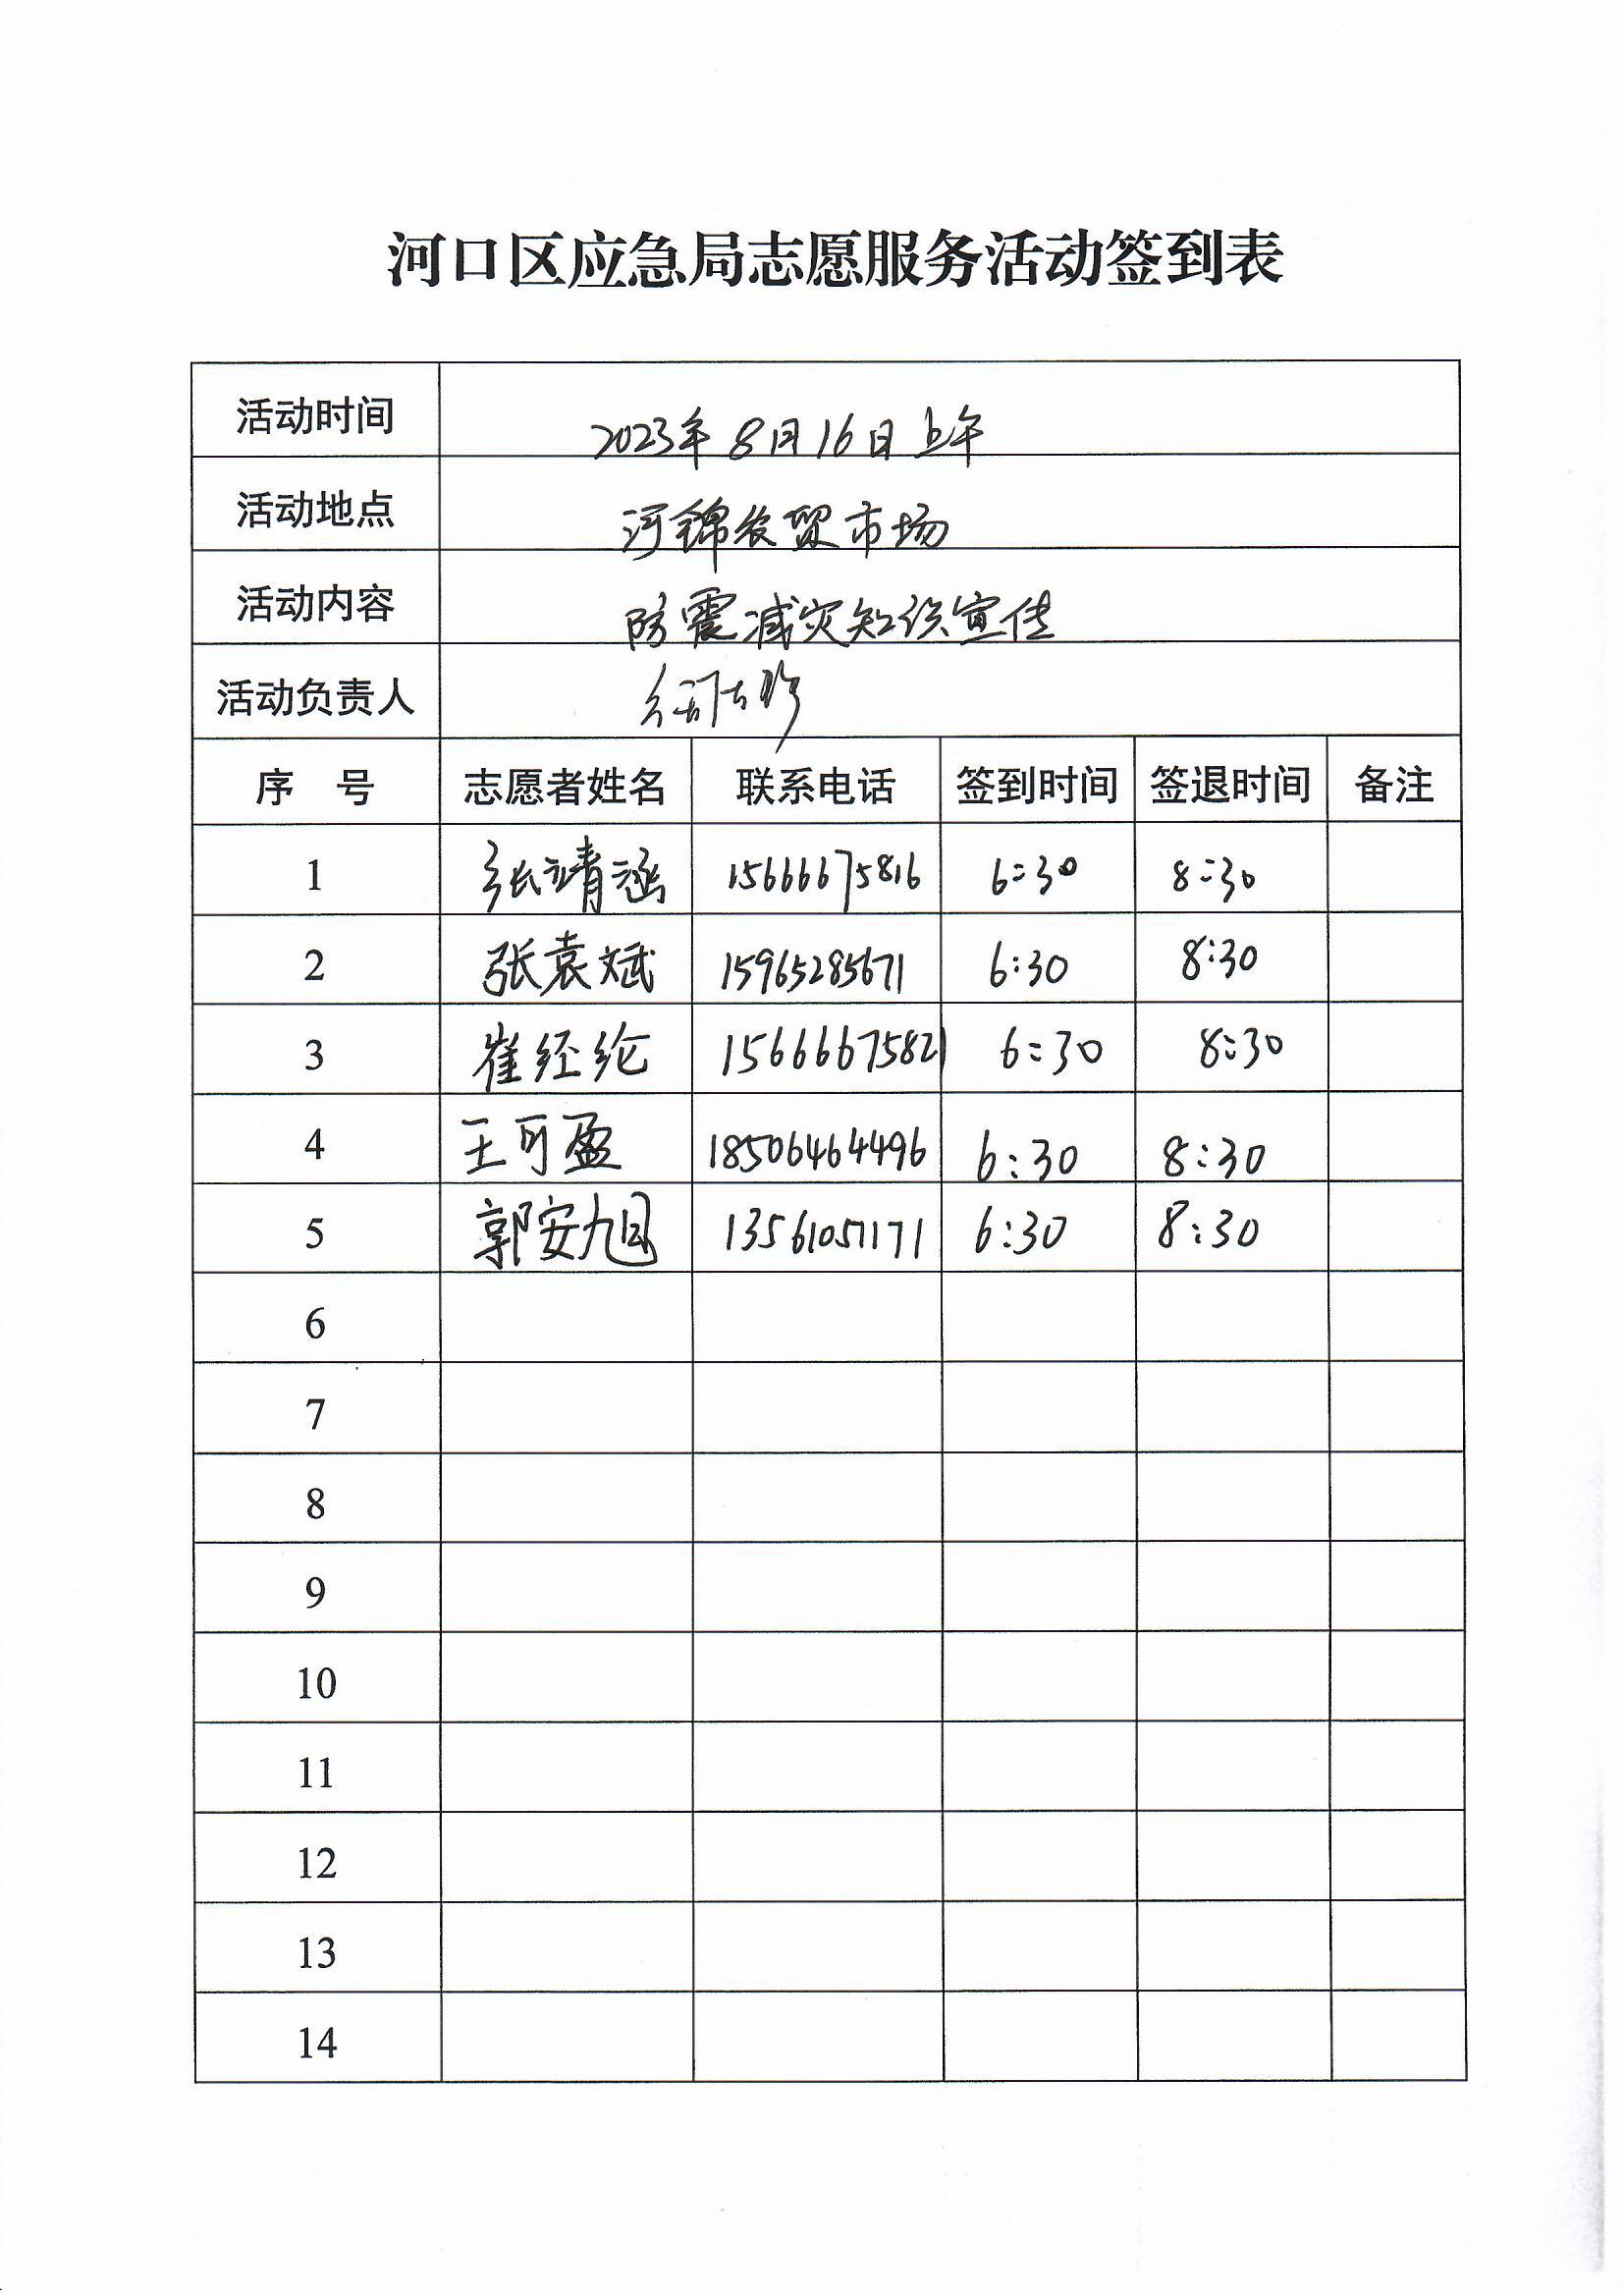 河口区应急局志愿服务活动签到表
活动时间 2023年8月16日上午
活动地点 河锦农贸市场
活动内容 防震减灾知识宣传
活动负责人
序 号 志愿者姓名 联系电话 签到时间 签退时间 备注
1 张靖涵 15666675816 6:30 8:30
2 张袁斌 15965285671 6:30 8:30
3 崔经纶 15666675821 6:30 8:30
4 王可盈 18506464496 6:30 8:30
5 郭安旭 13561051171 6:30 8:30
6
7
8
9
10
11
12
13
14